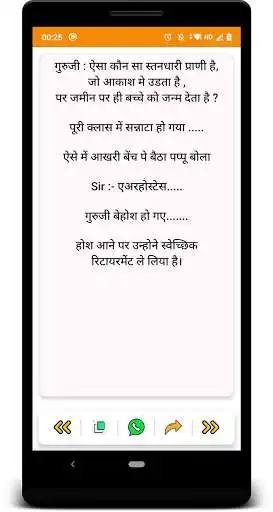 00:25
HD
गुरुजी : ऐसा कौन सा स्तनधारी प्राणी है,
जो आकाश मे उडता है ,
पर जमीन पर ही बच्चे को जन्म देता है ?
पूरी क्लास में सन्नाटा हो गया .....
ऐसे में आखरी बेंच पे बैठा पप्पू बोला
Sir :- एअरहोस्टेस.....
गुरुजी बेहोश हो गए.......
होश आने पर उन्होने स्वेच्छिक
रिटायरमेंट ले लिया है।